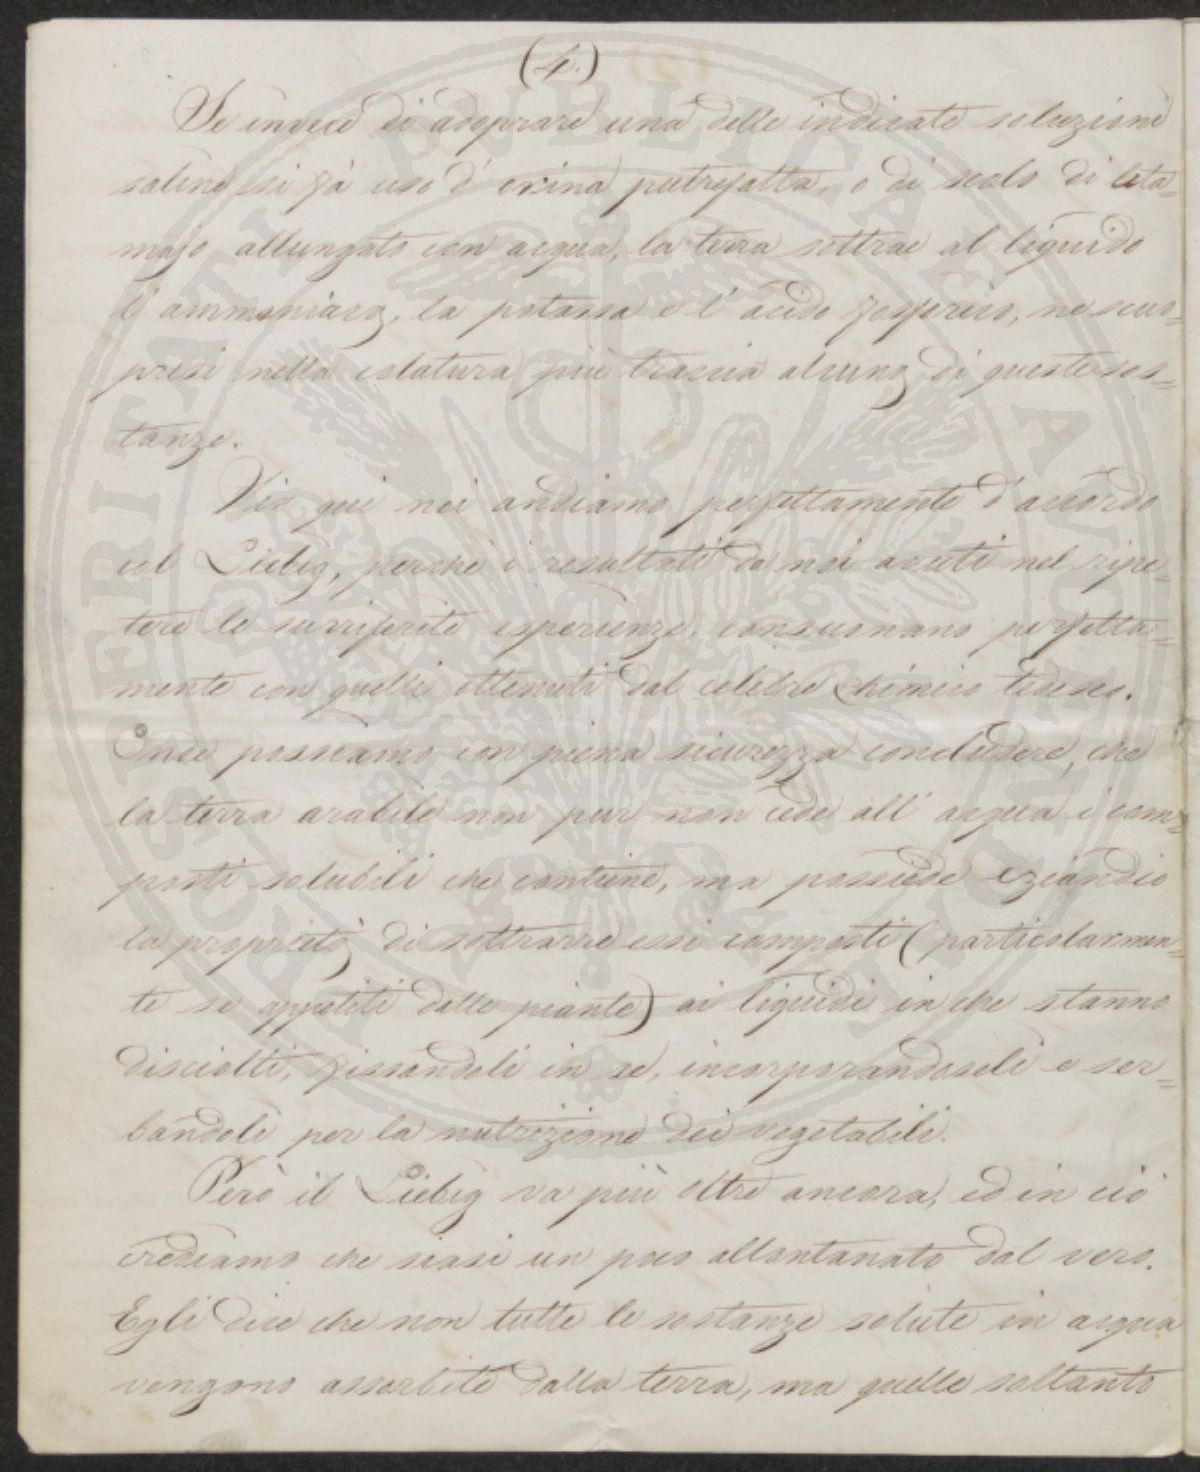 (4.)
Se invece di adoprare una delle indicate soluzioni
saline si fà uso d' orina putrefatta, o di scolo di leta=
majo allungato con acqua, la terra sottrae al liquido
l' ammoniaca, la potassa e l' acido fosforico, ne scuo=
presi nella colatura più traccia alcuna di queste sos=
tanze.
Fin qui noi andiamo perfettamente d' accordo
col Liebig, perchè i resultati da noi avuti nel ripe=
tere le surriferite esperienze, consuonano perfetta=
mente con quelli ottenuti dal celebre chimico tedesco.
Onde possiamo con piena sicurezza concludere, che
la terra arabile non pur non cede all' acqua i com=
posti solubili che contiene, ma possiede eziandio
la proprietà di sottrarre essi composti (particolarmen=
te se appetiti dalle piante) ai liquidi in che stanno
disciolti, fissandoli in se, incorporandoseli e ser=
bandoli per la nutrizione dei vegetabili.
Però il Liebig va più oltre ancora, ed in ciò
crediamo che siasi un poco allontanato dal vero.
Egli dice che non tutte le sostanze solute in acqua
vengono assorbite dalla terra, ma quelle soltanto
PROSPERITATI PUBLICAE AUGENDAE